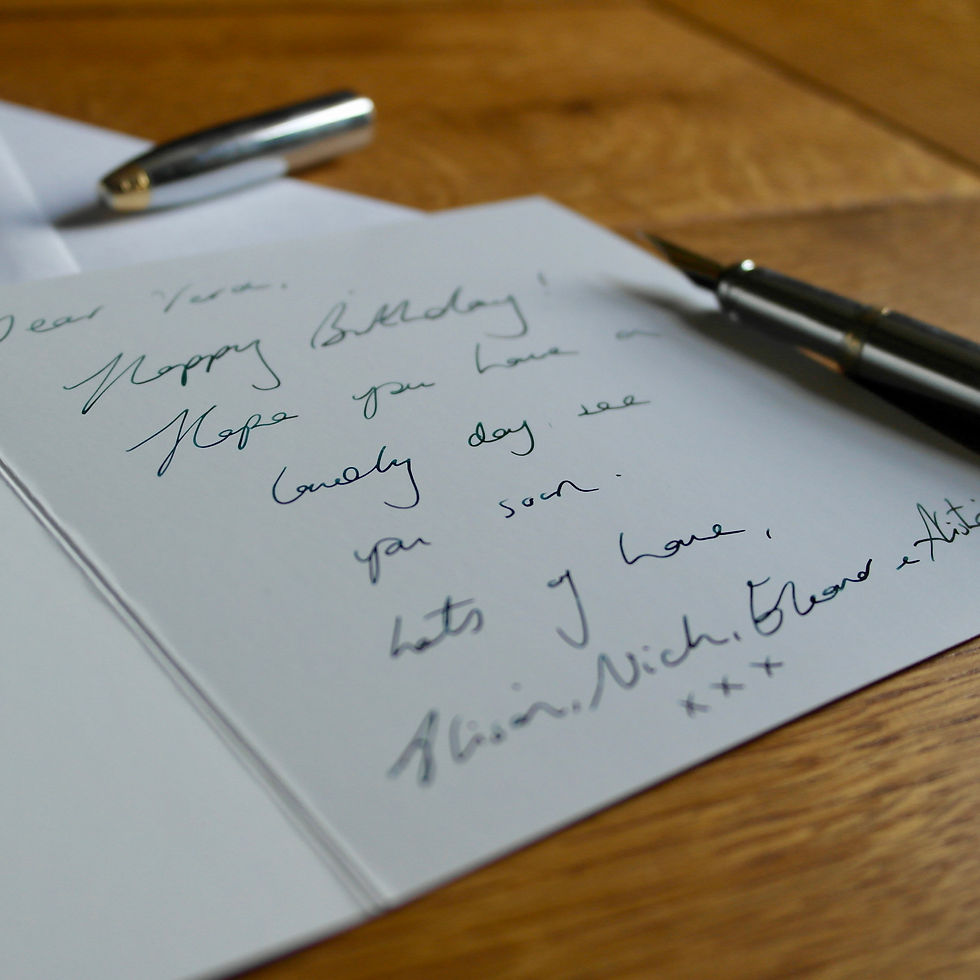 Dear Vera,
Happy Birthday!
Hope you have a
lovely day, see
you soon.
Lots of love,
Alison, Nick, Eleanor &
x x x